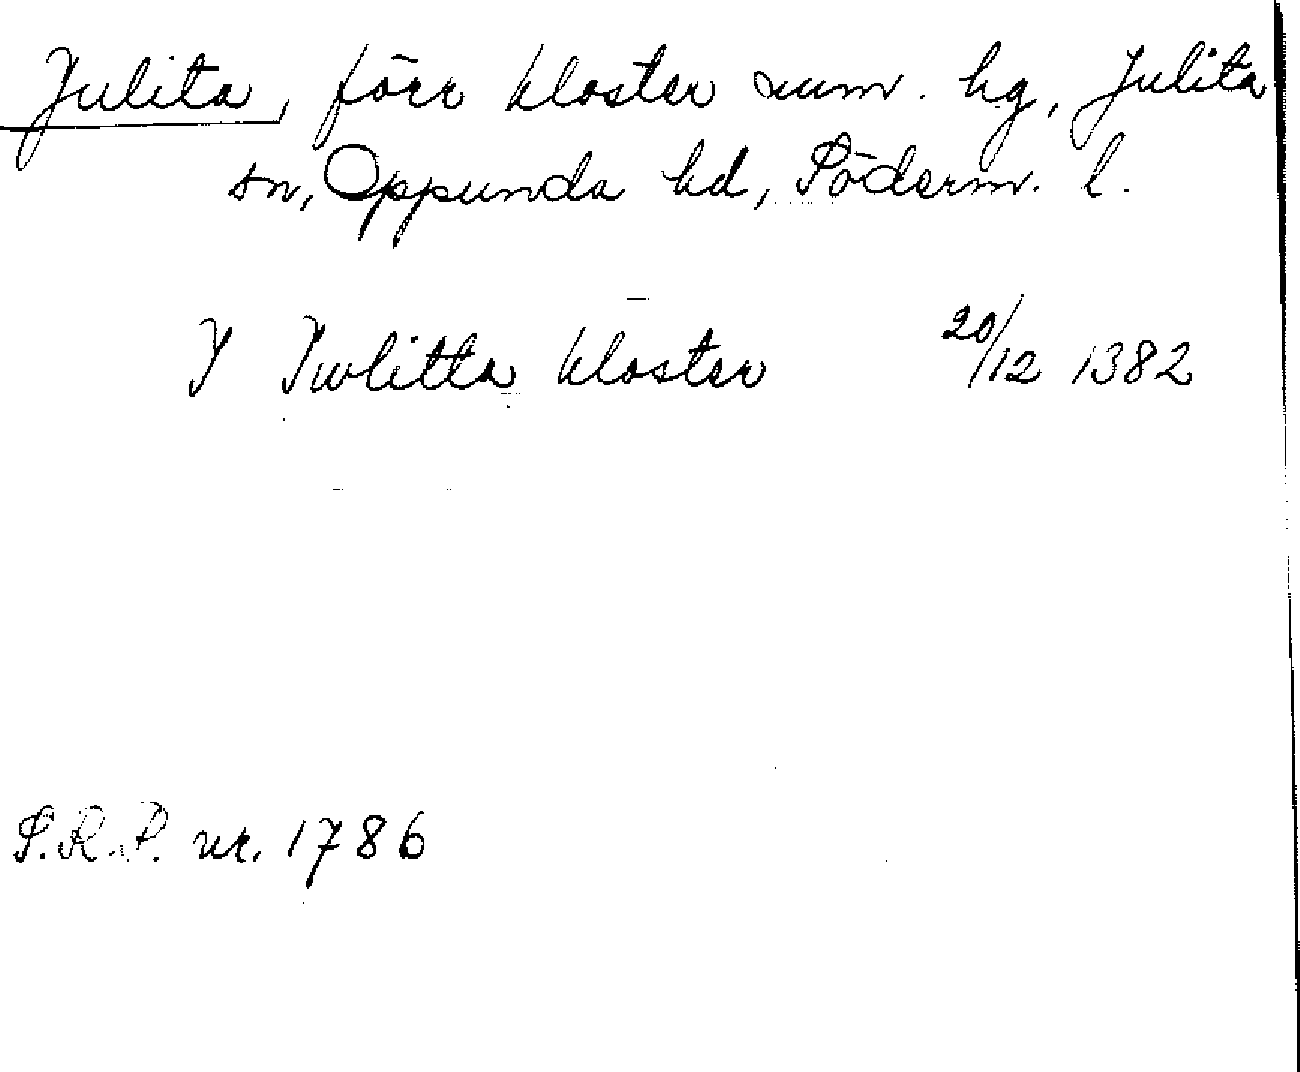 Julita, förr kloster num. hg, Julita
sn, Oppunda hd, Söderm. l.
J Jwlitta kloster 20/12 1382
S.R.P. nr. 1786